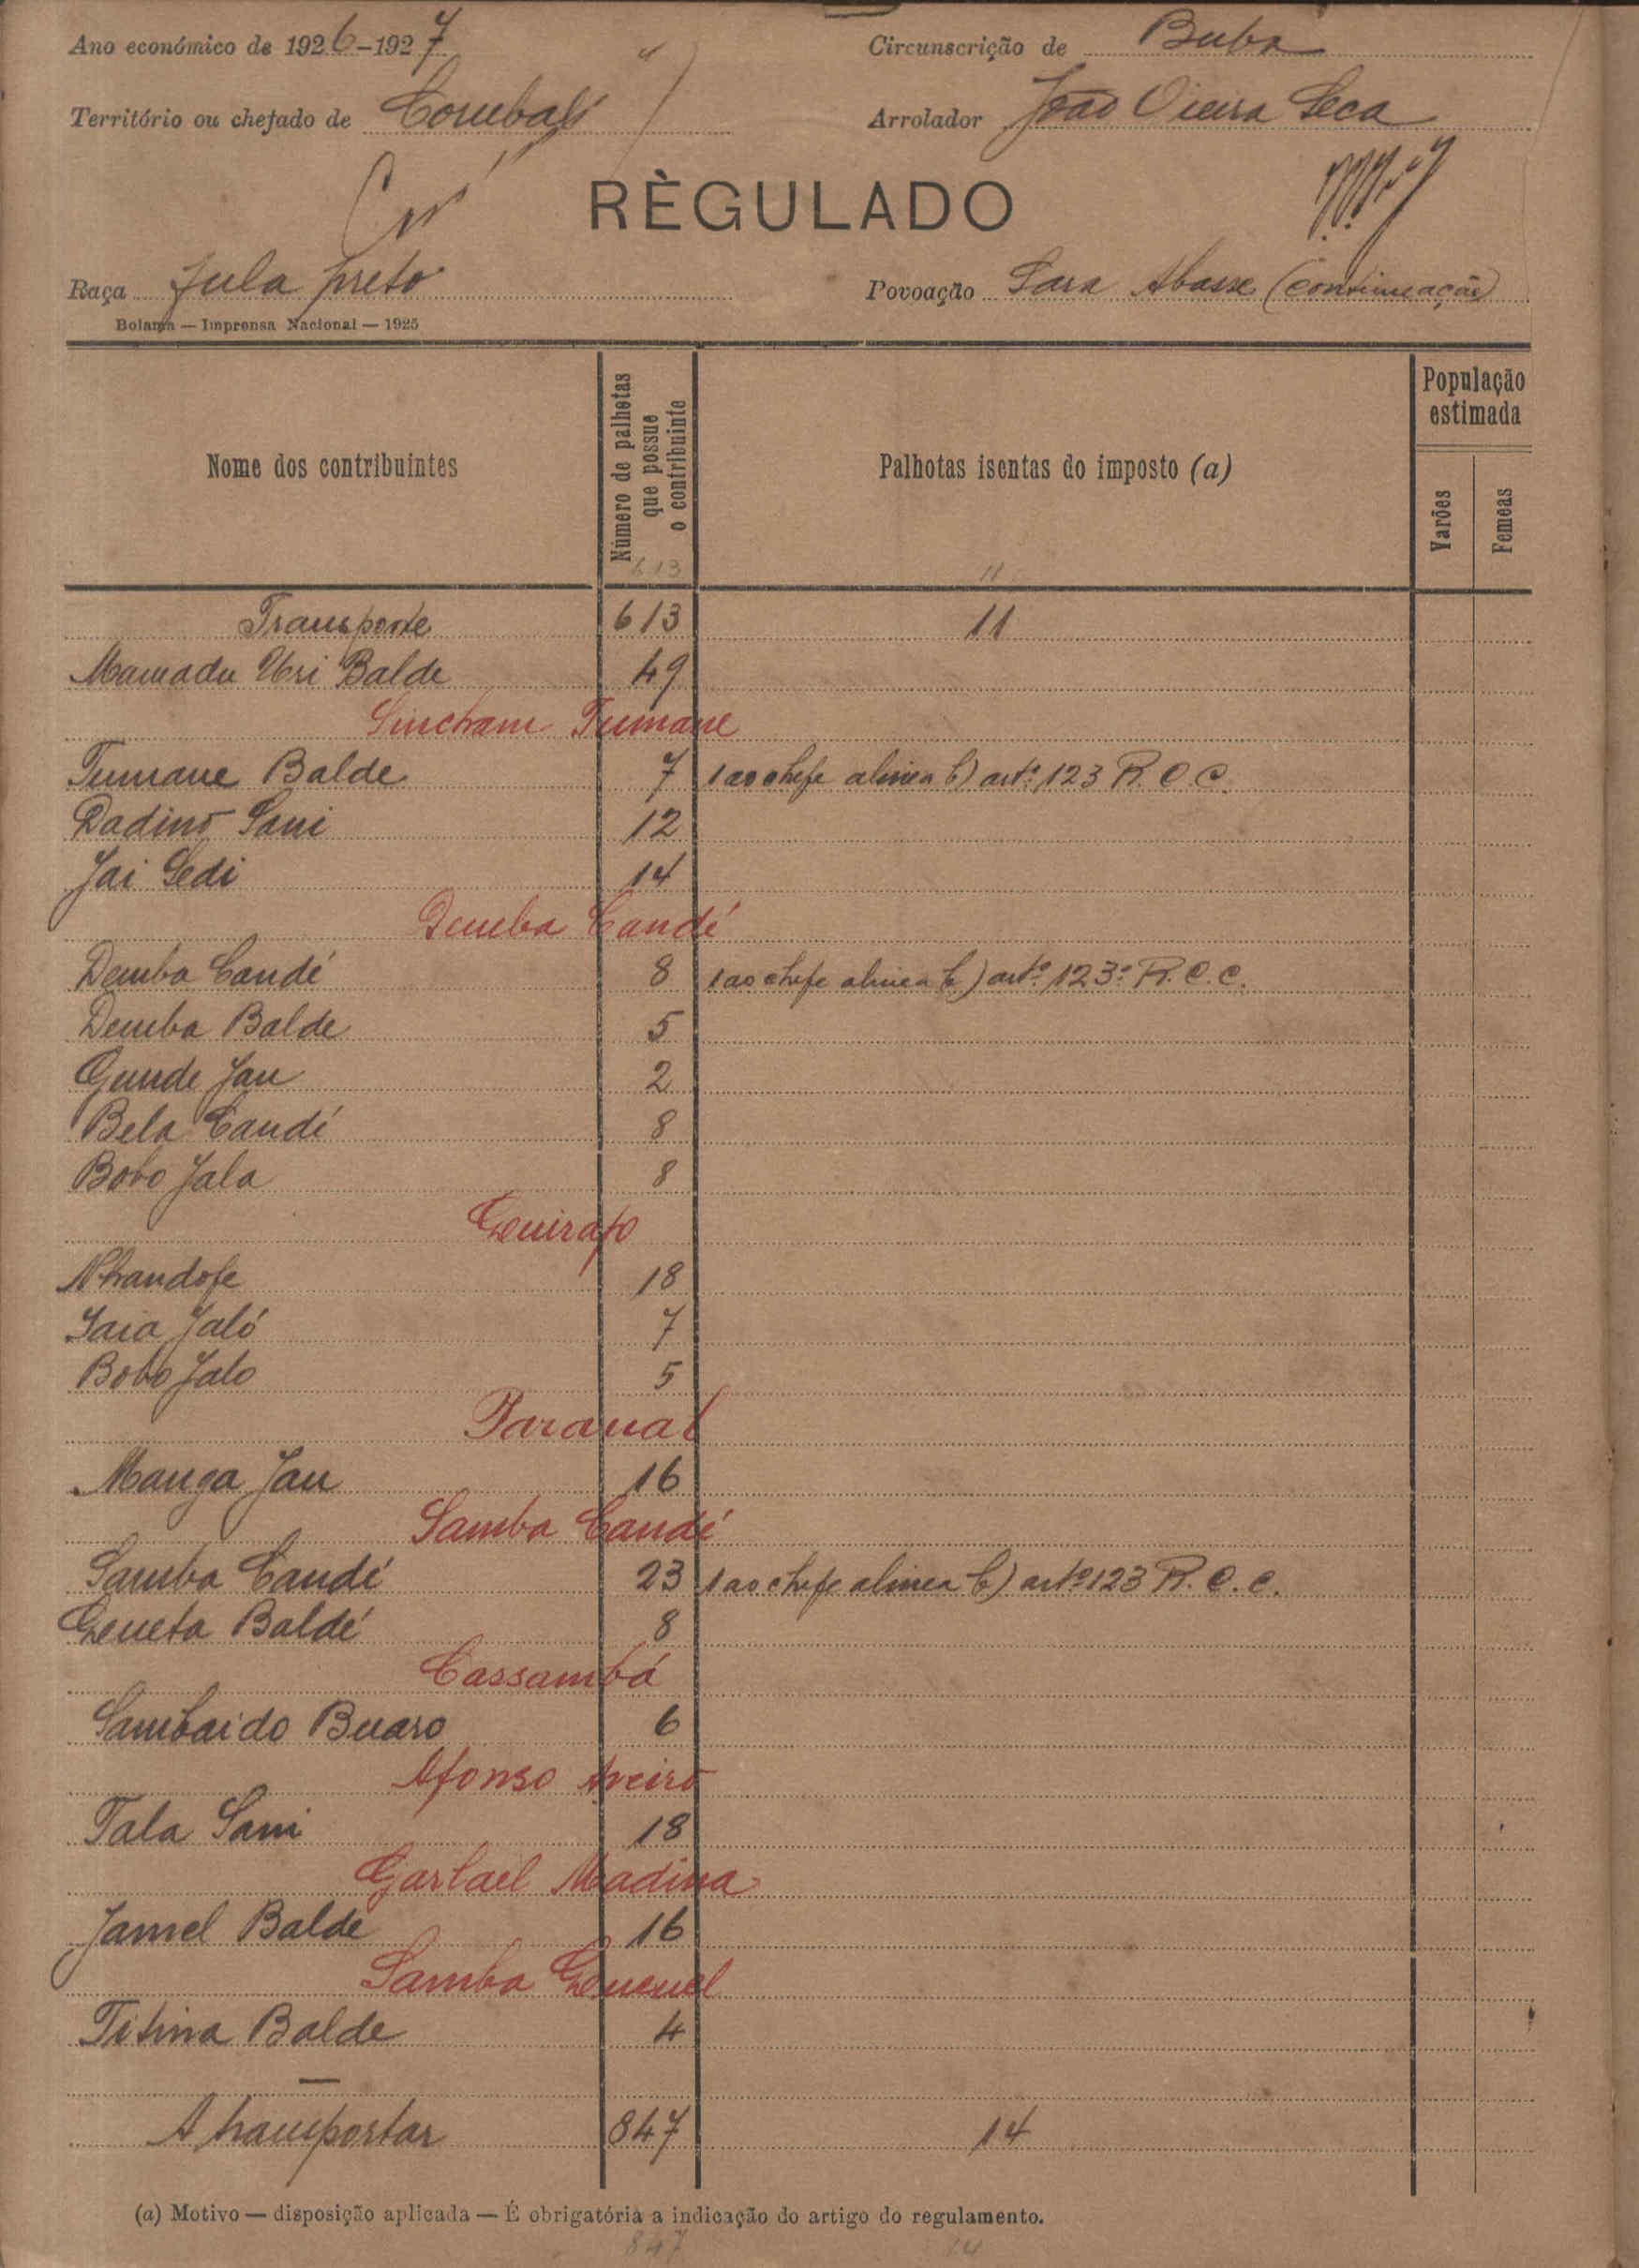 Ano económico de 1926-1927
Circunscrição de Buba
Território ou chefado de Corubal
Arrolador João Vieira Seca
RÈGULADO
Raça Fula preto
Povoação Sara Abasse (continuação)
Bolama — Imprensa Nacional — 1925
Nome dos contribuintes
Número de palhotas que possue o contribuinte
Palhotas isentas do imposto (a)
População estimada
Varões
Femeas
613 11
Transporte 613 11
Mamadu Uri Balde 49
Sincham Tumane
Tumane Balde 7 1 ao chefe alinea b) artº 123 R. C. C.
Dadino Sani 12
Jai Sedi 14
Demba Candé
Demba Candé 8 1 ao chefe alinea b) artº 123º R. C. C.
Demba Balde 5
Gunde Jau 2
Bela Candé 8
Bobo Jala 8
Quirafo
Nhandofe 18
Iaia Jaló 7
Bobo Jalo 5
Paranal
Manga Jau 16
Samba Candé
Samba Candé 23 1 ao chefe alinea b) artº 123 R. C. C.
Queueta Baldé 8
Cassambá
Sambaido Buaro 6
Afonso Aveiro
Tala Sani 18
Madina
Jamel Balde 16
Samba
Titina Balde 4
A transportar 847 14
(a) Motivo — disposição aplicada — É obrigatória a indicação do artigo do regulamento.
847 14